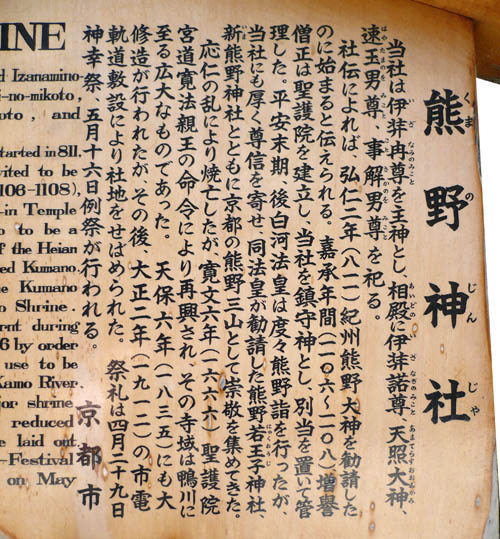 熊野神社
くまのじんじゃ
当社は伊弉冉尊を主神とし、相殿に伊弉諾尊、天照大神、
速玉男尊、事解男尊を祀る。
社伝によれば、弘仁二年(八一一)紀州熊野大神を勧請した
のに始まると伝えられる。嘉承年間(一一〇六〜一一〇八)増誉
僧正は聖護院を建立し、当社を鎮守神とし、別当を置いて管
理した。平安末期、後白河法皇は度々熊野詣を行ったが、
当社にも厚く尊信を寄せ、同法皇が勧請した熊野若王子神社、
新熊野神社とともに京都の熊野三山として崇敬を集めてきた。
応仁の乱により焼亡したが、寛文六年(一六六六)聖護院
宮道寛法親王の命令により再興され、その寺域は鴨川に
至る広大なものであった。天保六年(一八三五)にも大
修造が行われたが、その後、大正二年(一九一二)の市電
軌道敷設により社地をせばめられた。祭礼は四月二十九日
神幸祭、五月十六日例祭が行われる。
京都市
INE
Izanamino-
i-no-mikoto,
oto, and
started in 811.
vited to be
1106-1108),
-in Temple
to be a
f the Heian
ed Kumano.
e Kumano
o Shrine.
rnt during
6 by order
use to be
Kamo River.
jor shrine
reduced
e laid out
-Festival
on May